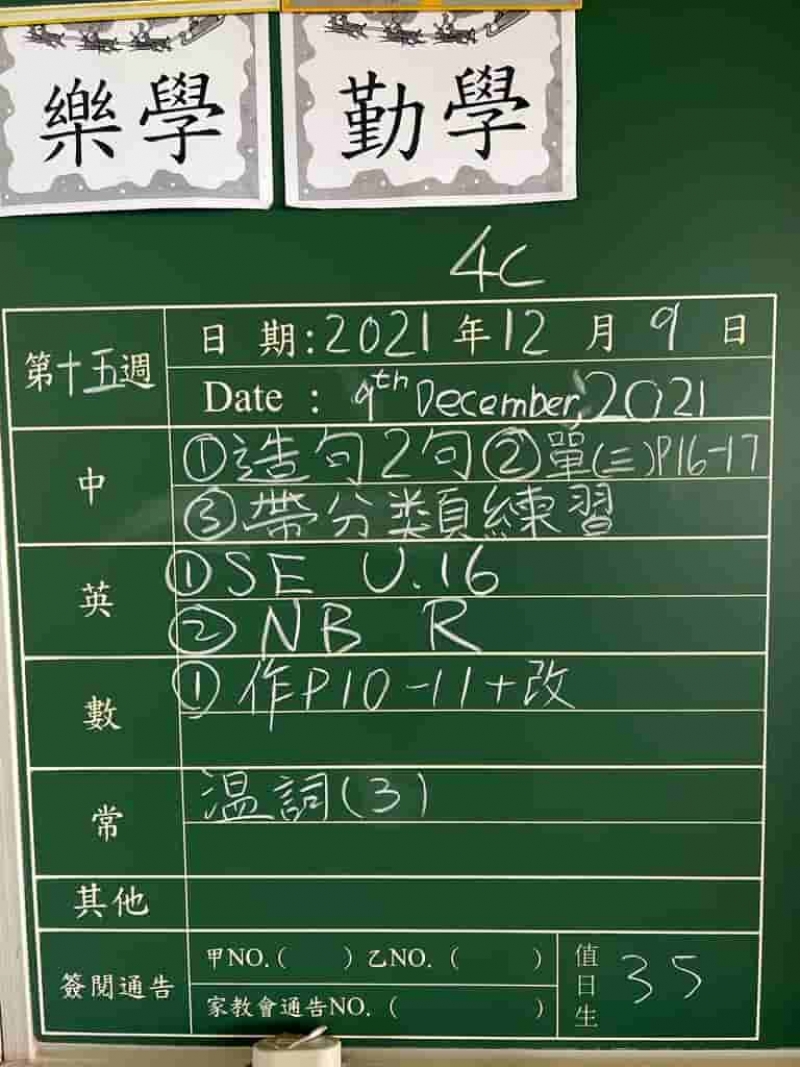 樂學 勤學
4C
第十五週 日 期:2021年12月9日
Date : 9th December, 2021
中 ①造句2句②單(三)P16-17
③帶分类頁練習
英 ①SE U.16
②NB R
數 ①作P10-11+改
常 温詞(3)
其他
簽閱通告 甲NO.( ) 乙NO. ( ) 值日生 35
家教會通告NO. ( )